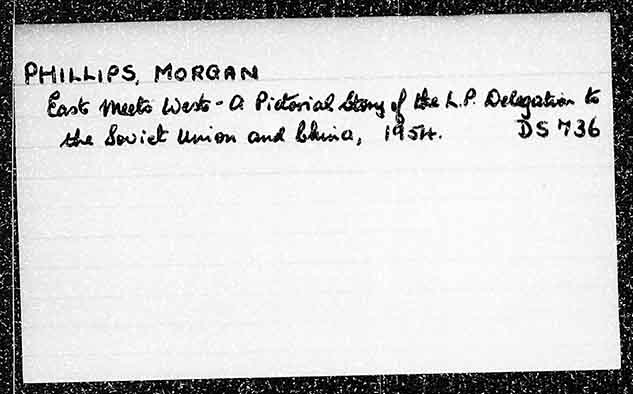 PHILLIPS, MORGAN
East Meets West - A Pictorial Story of the L.P. Delegation to
the Soviet Union and China, 1954. DS 736